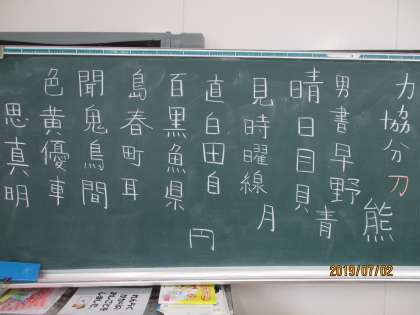 力協分刀
熊
男書早野
晴日目貝青
見時曜線月
直白田自
円
百黒魚県
島春町耳
聞鬼鳥間
色黄優車
思真明
2019/07/02